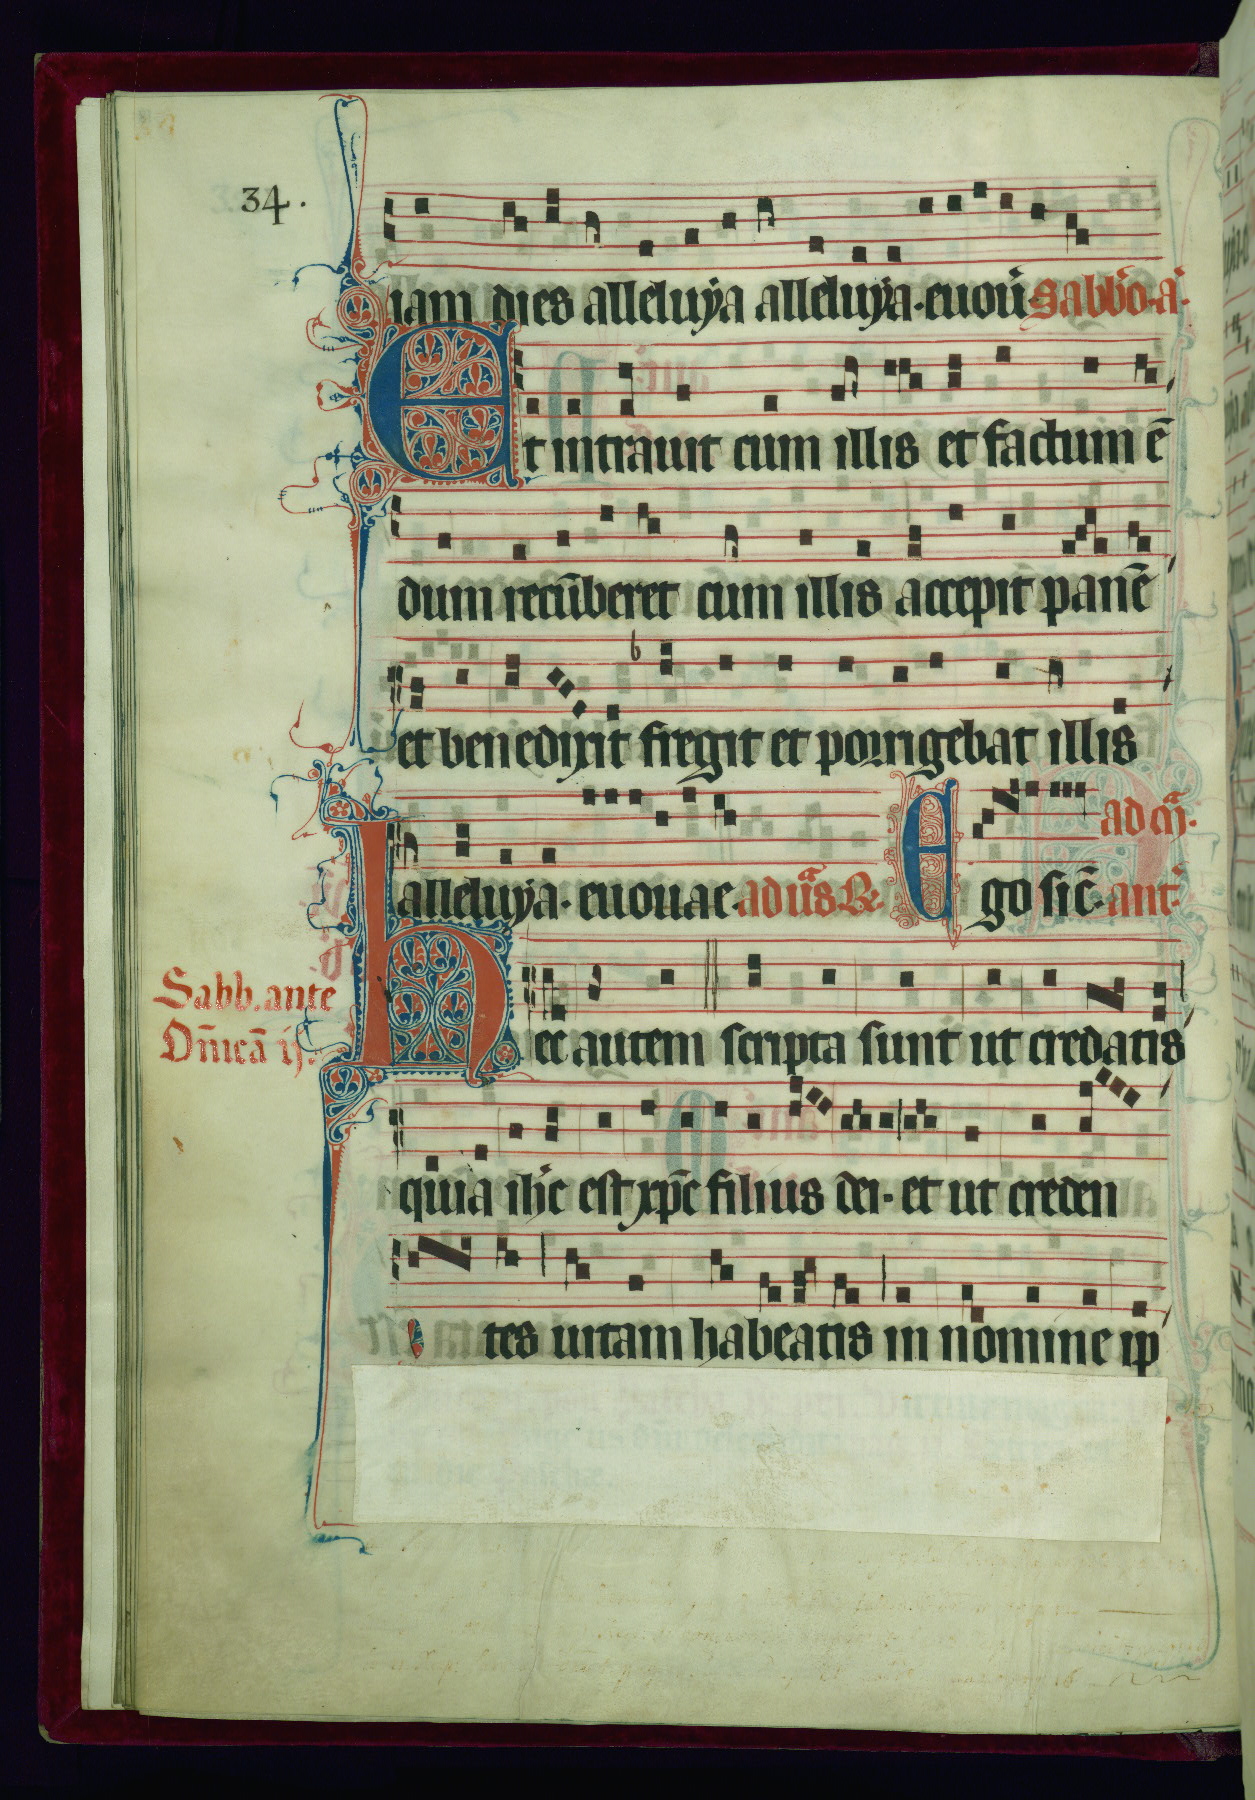 34.
iam dies alleluÿa alleluÿa. euoũ. sabbo. a.
Et intrauit cum illis et factum ē
dum recūberet cum illis accepit panē
et benedixit fregit et porrigebat illis
alleluÿa. euouae. ad uãs. R. Ego sic̄. ant.
ad m̃.
Sabb. ante
Dñicã ij.
Hec autem scripta sunt ut credatis
quia ih̄c est xp̄c filius dei. et ut creden
tes uitam habeatis in nomine ip